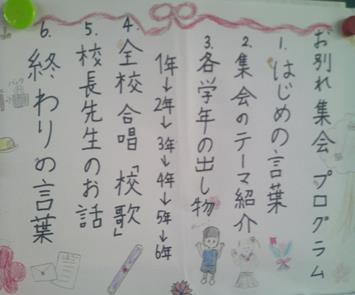 お別れ集会 プログラム
1.はじめの言葉
2.集会のテーマ紹介
3.各学年の出し物
1年→2年→3年→4年→5年→6年
4.全校合唱「校歌」
5.校長先生のお話
6.終わりの言葉